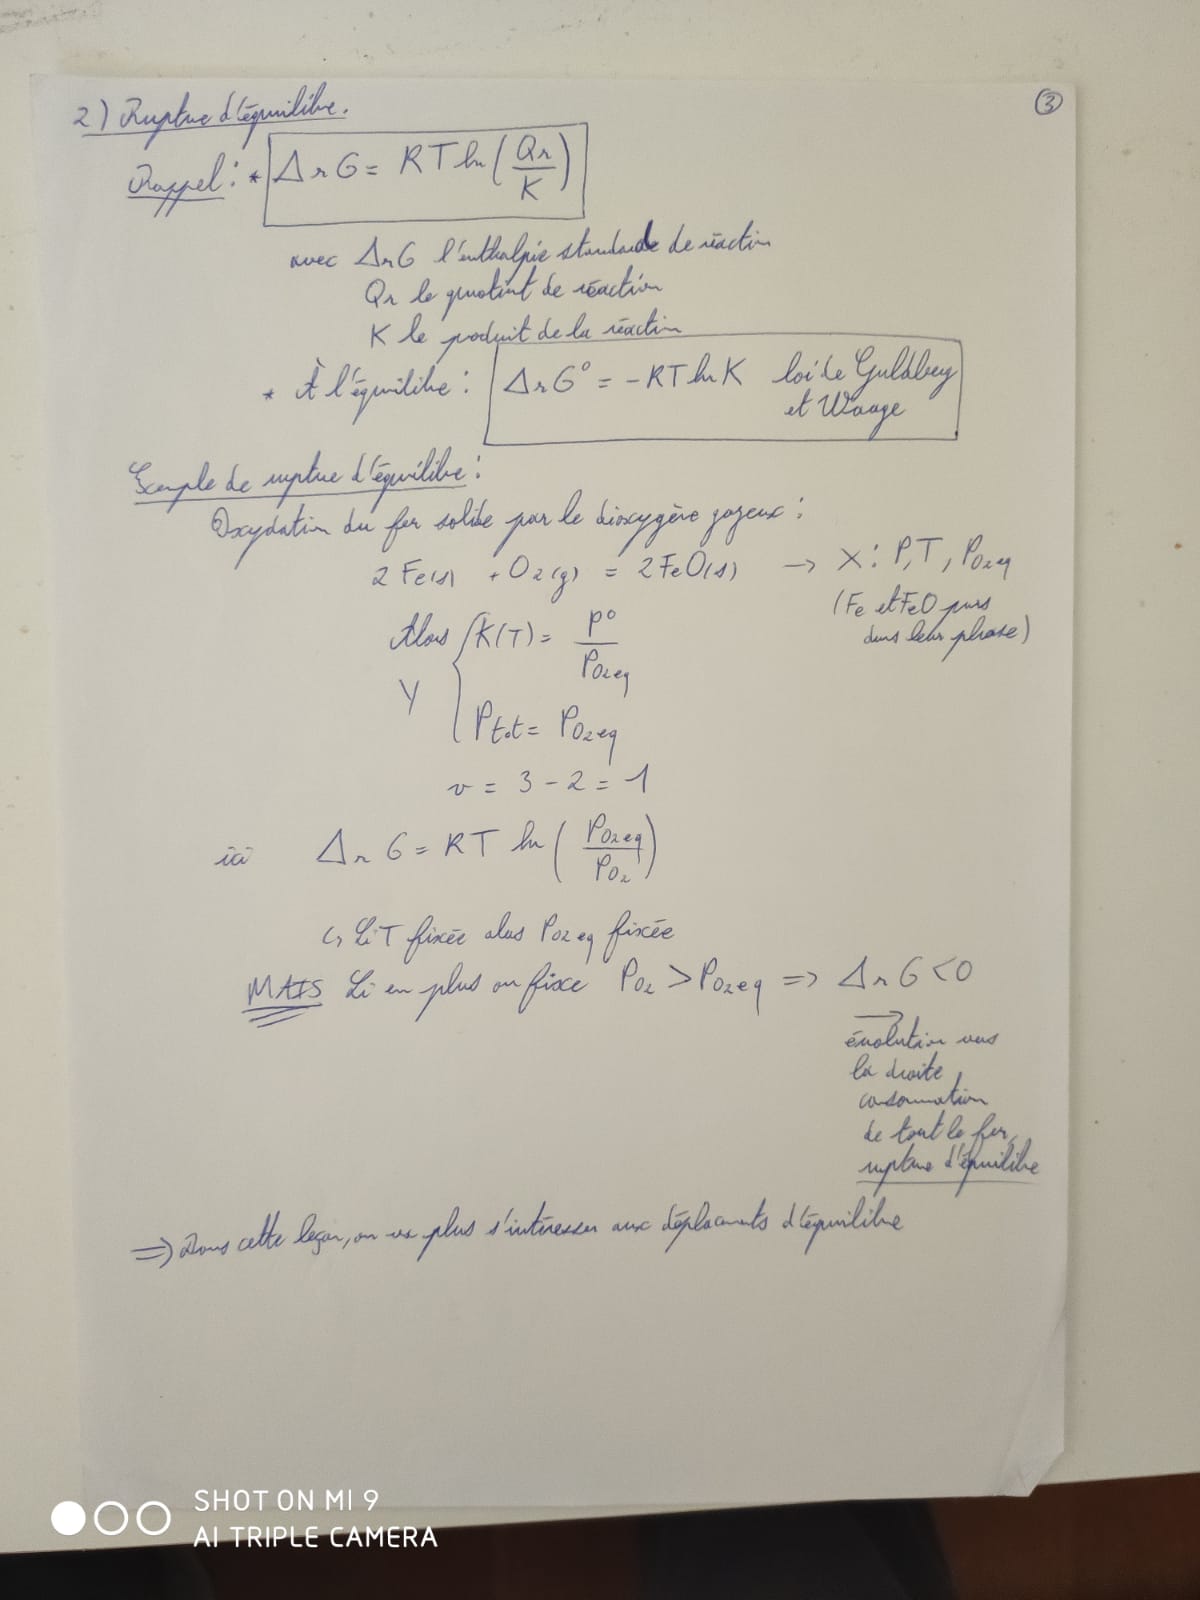 ③
2) Rupture d'équilibre.
Rappel : * ΔrG = RT ln(Qr/K)
avec ΔrG l'enthalpie standarde de réaction
Qr le quotient de réaction
K le produit de la réaction
* À l'équilibre : ΔrG° = -RT ln K loi de Guldberg
et Waage
Exemple de rupture d'équilibre :
Oxydation du fer solide par le dioxygène gazeux :
2 Fe(s) + O2(g) = 2 FeO(s) → X : P, T, PO2eq
(Fe et FeO purs
dans leur phase)
Alors K(T) = P°/PO2eq
Y
Ptot = PO2eq
v = 3 - 2 = 1
ici ΔrG = RT ln(PO2eq/PO2)
↳ Si T fixée alors PO2eq fixée
MAIS Si en plus on fixe PO2 > PO2eq => ΔrG < 0
→
évolution vers
la droite,
consommation
de tout le fer,
rupture d'équilibre
=> Dans cette leçon, on va plus s'intéresser aux déplacements d'équilibre
SHOT ON MI 9
AI TRIPLE CAMERA